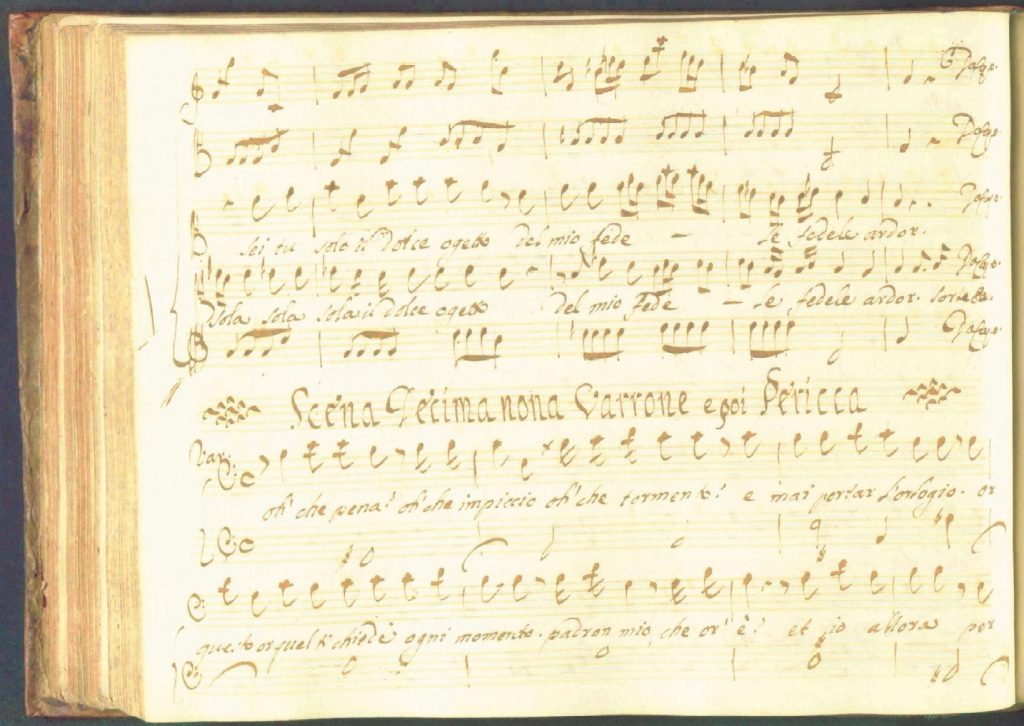 Da Capo.
Da Capo
Da Capo
sei tu solo il dolce ogetto del mio fede – le fedele ardor.
Da Capo
sola sola sola il dolce ogetto del mio fede – le fedele ardor.
Da Capo
Scena Decima nona Varrone e poi Pericca
Var:
oh' che pena! oh' che impiccio oh' che tormento! e mai portar l'orlogio. or
questo or quel ti chiede ogni momento. padron mio che or' è? et io allora por